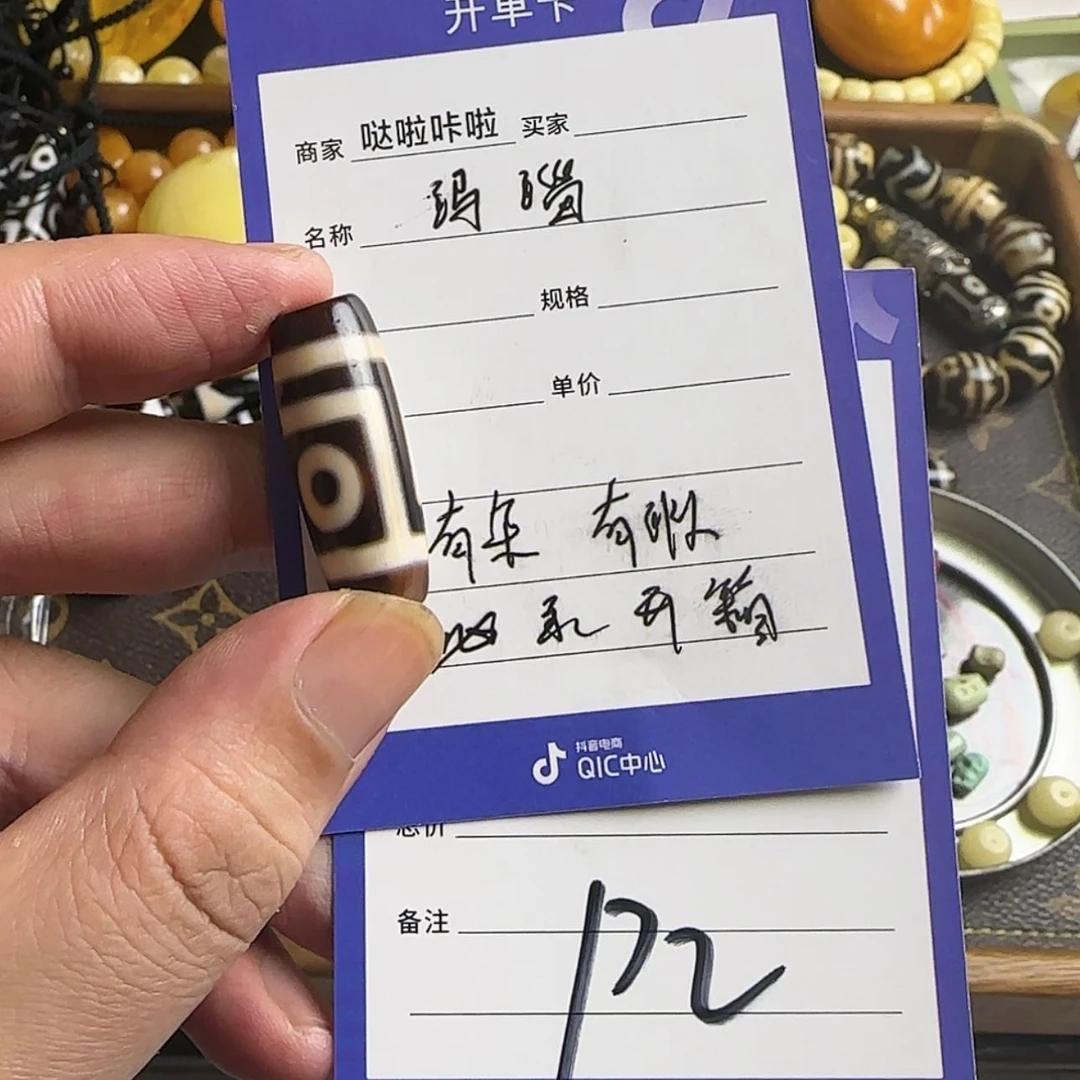 开单卡
商家 哒啦咔啦 买家
名称 玛瑙
规格
单价
有朵 有瑕
抖音电商
QIC中心
总价
备注
172